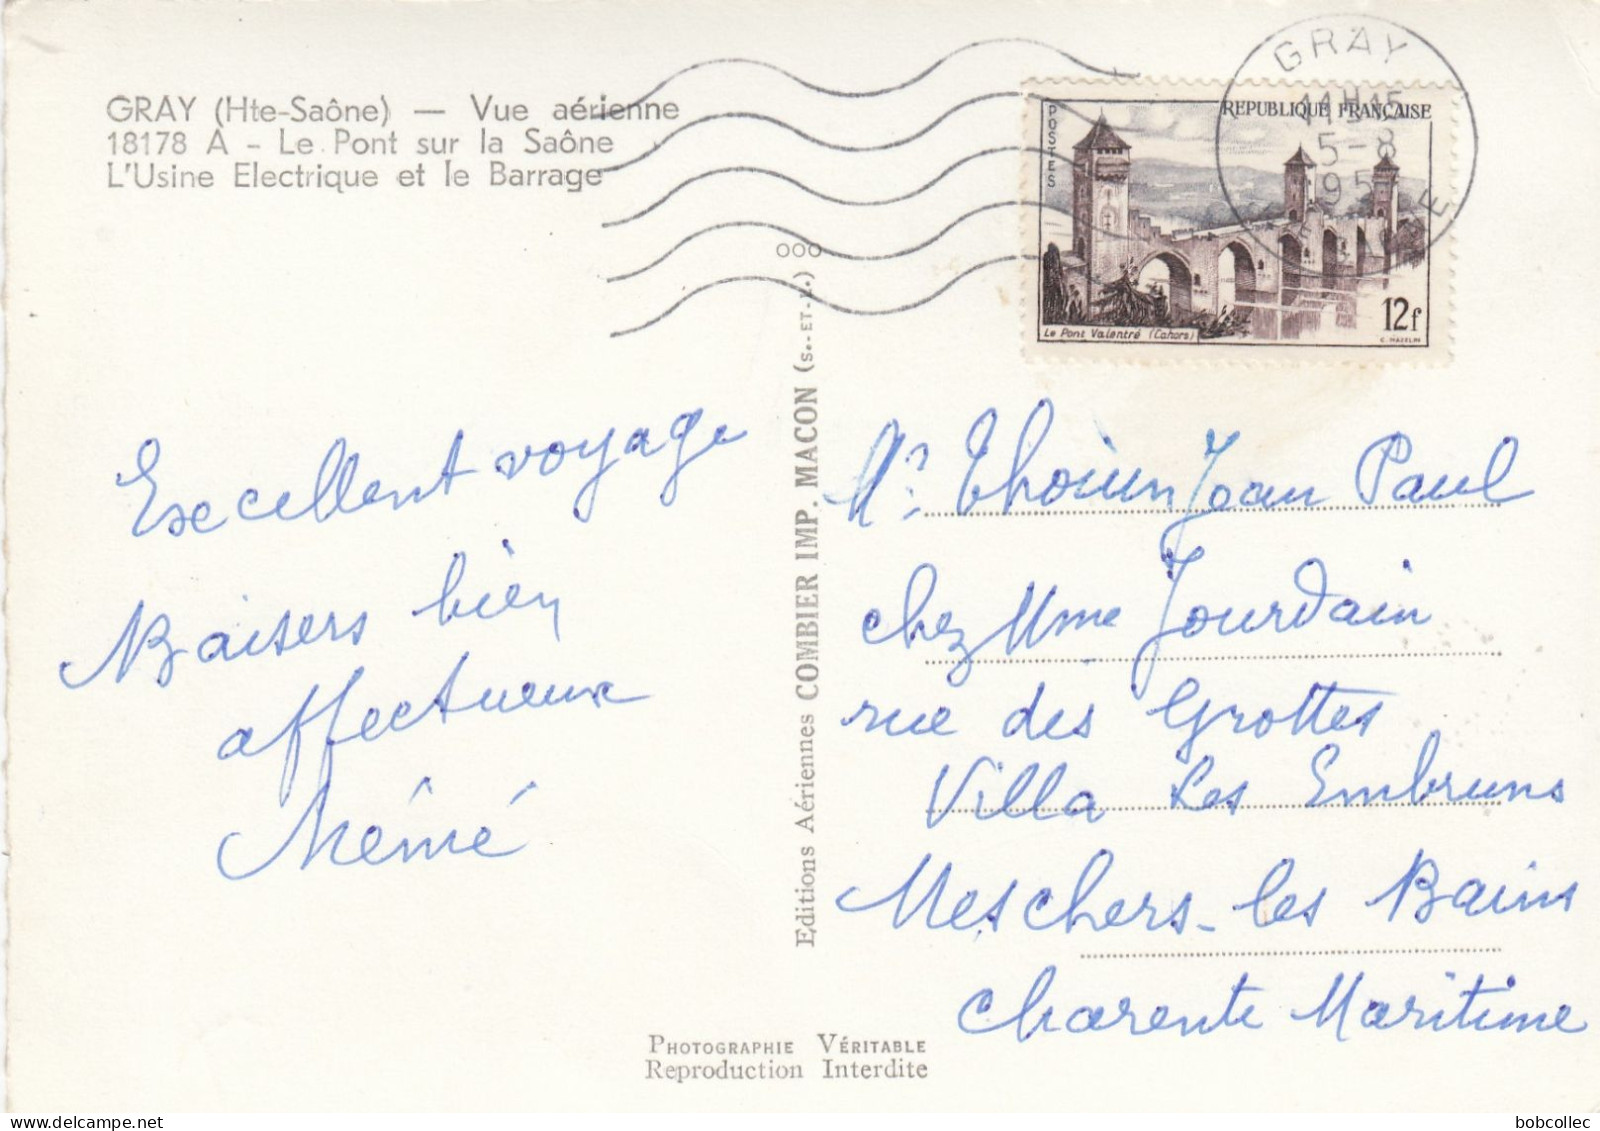 GRAY (Hte-Saône) — Vue aérienne
18178 A - Le Pont sur la Saône
L'Usine Electrique et le Barrage
GRAY
11H15
5-8
195
POSTES
REPUBLIQUE FRANÇAISE
12f
Le Pont Valentré (Cahors)
C. MAZELIN
Excellent voyage
Baisers bien
affectueux
Mémé
Editions Aériennes COMBIER IMP. MACON (S.-ET-L.)
ooo
Mr Jean Paul
chez Mme Jourdain
rue des Grottes
Villa Les Embruns
Meschers-les Bains
Charente Maritime
PHOTOGRAPHIE VÉRITABLE
Reproduction Interdite
bobcollec